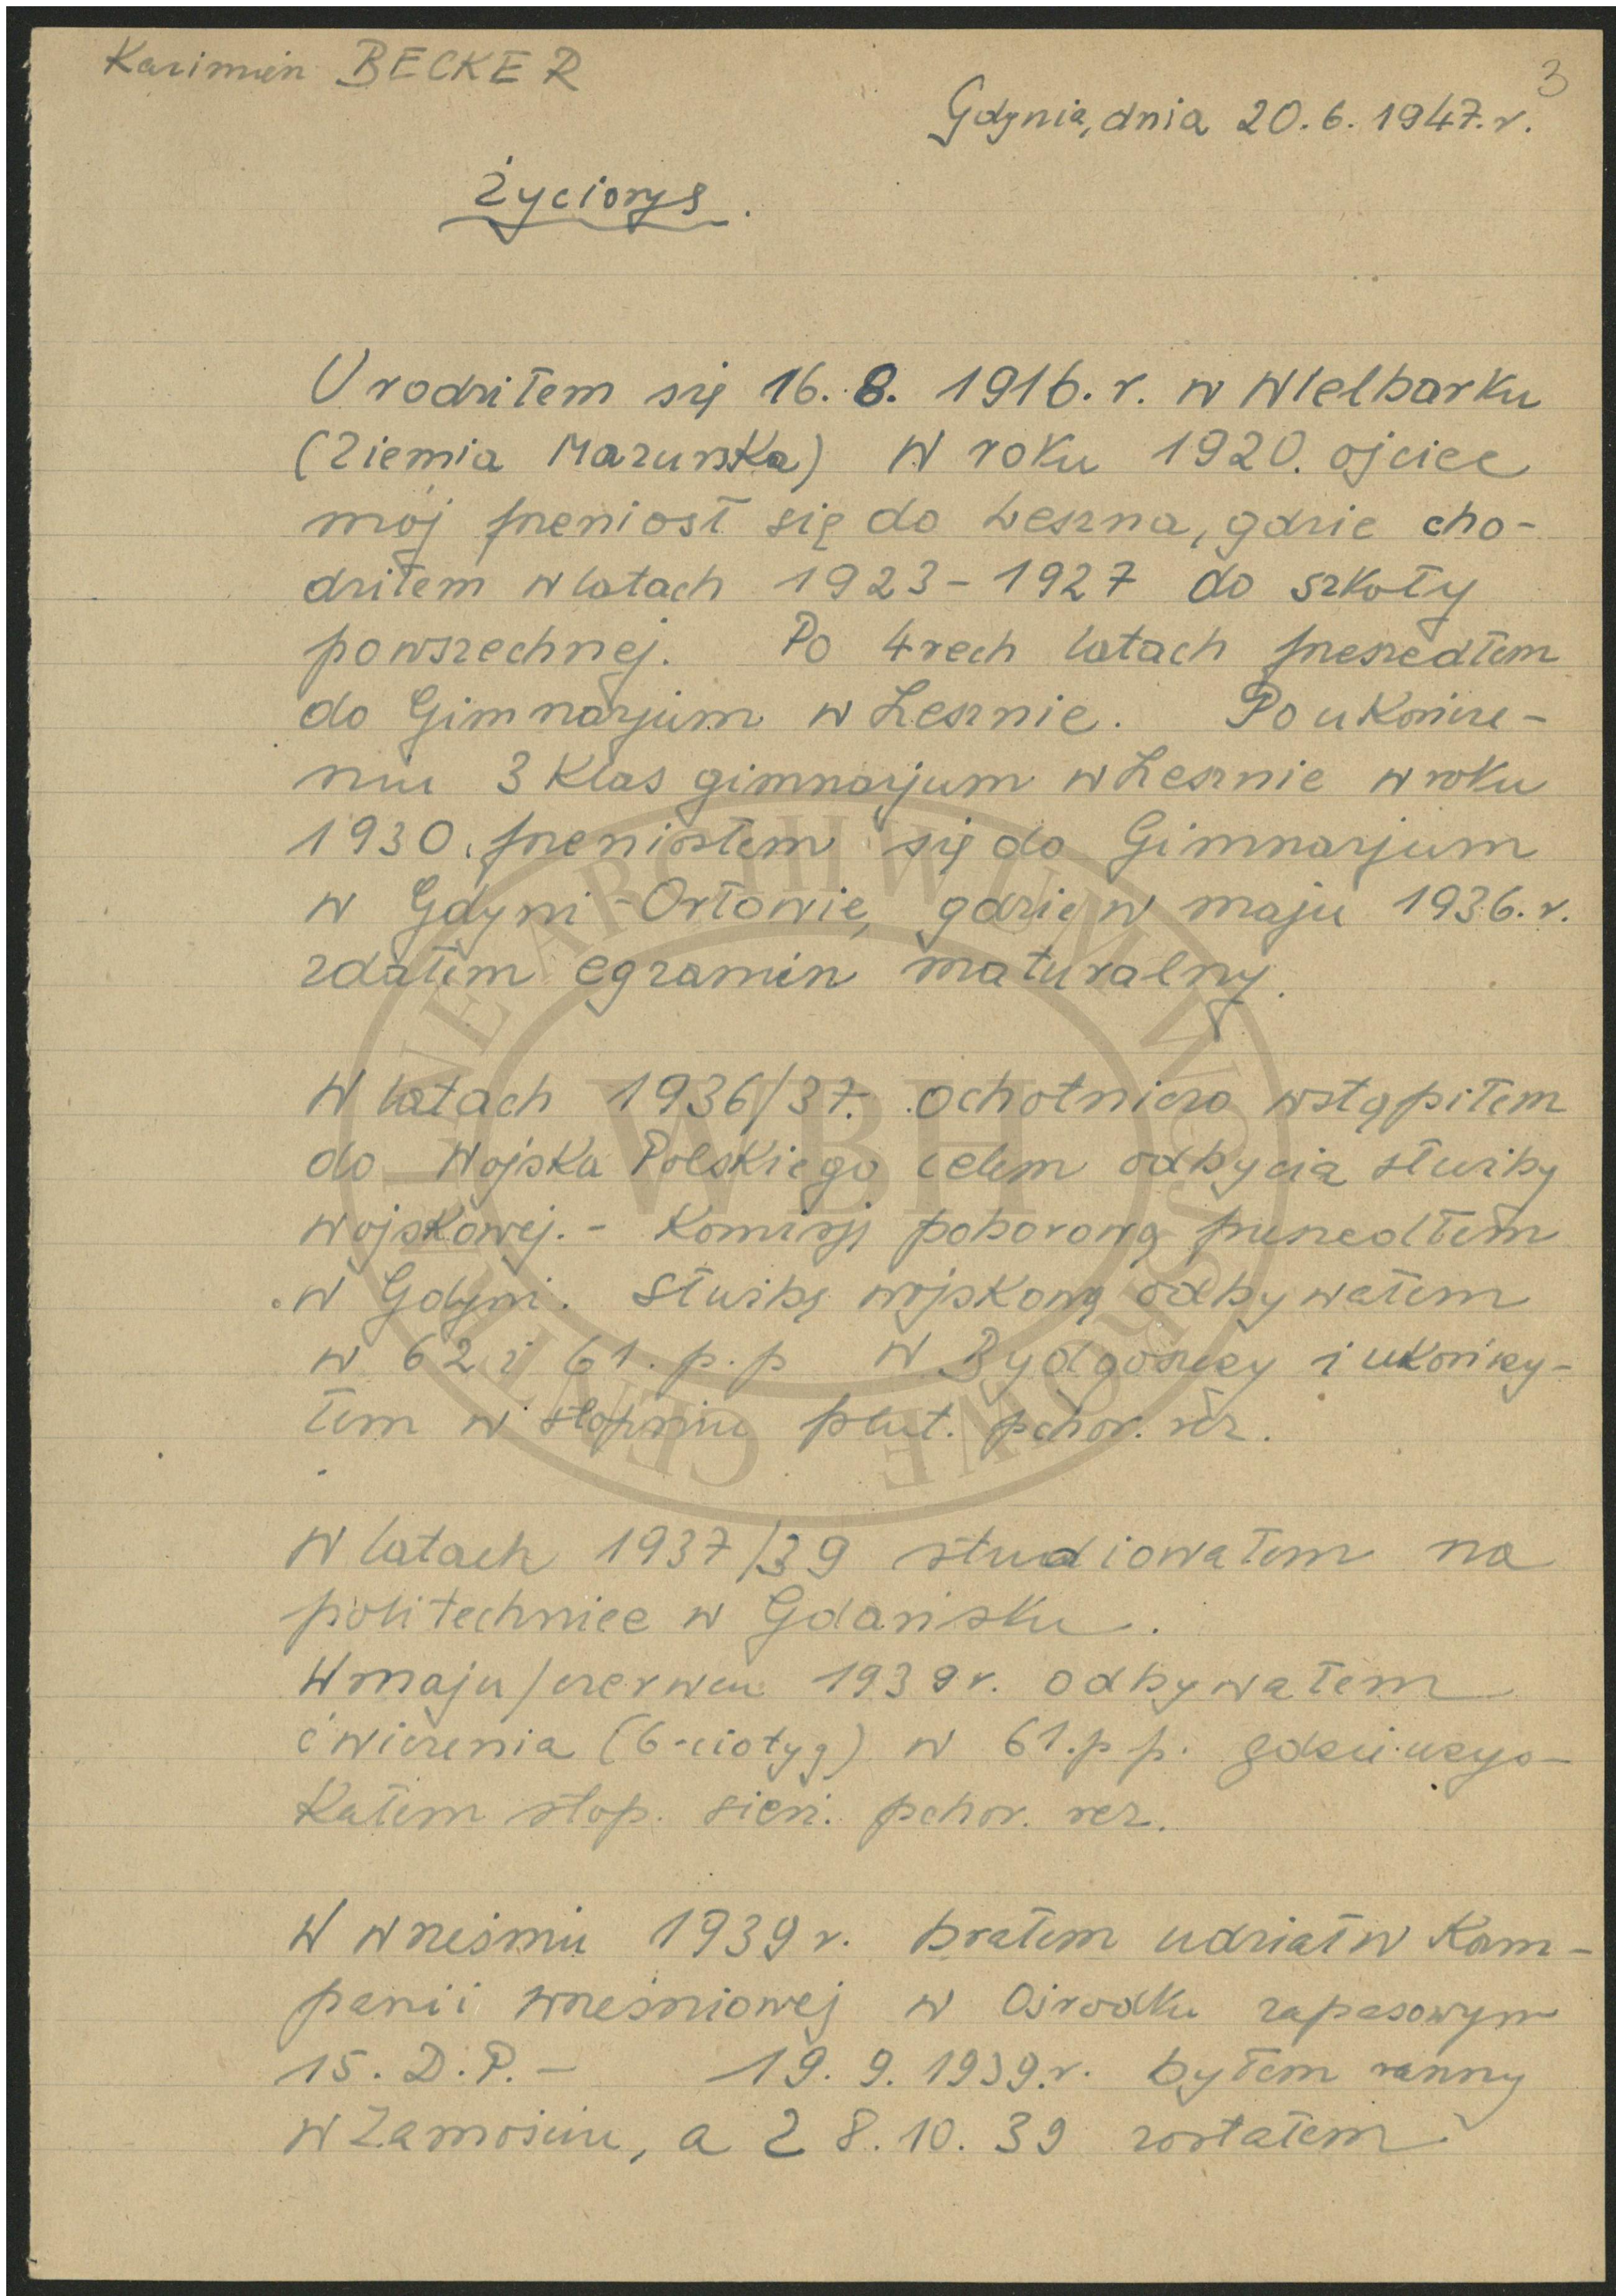 Kazimierz BECKER
3
Gdynia, dnia 20.6.1947.r.
Życiorys.
Urodziłem się 16.8.1916.r. w Wielbarku
(Ziemia Mazurska) W roku 1920. ojciec
mój przeniosł się do Leszna, gdzie cho-
dziłem w latach 1923-1927 do szkoły
powszechnej. Po 4rech latach przeszedłem
do Gimnazjum w Lesznie. Po ukończe-
niu 3 klas gimnazjum w Lesznie w roku
1930. przeniosłem się do Gimnazjum
w Gdyni-Orłowie, gdzie w maju 1936.r.
zdałem egzamin maturalny.
W latach 1936/37. ochotniczo wstąpiłem
do Wojska Polskiego celem odbycia służby
wojskowej.- Komisję poborową przeszedłem
w Gdyni. Służbę wojskową odbywałem
w 62 i 61. p.p w Bydgoszczy i ukończy-
łem w stopniu plut. pchor. rez.
W latach 1937/39 studiowałem na
politechnice w Gdańsku.
W maju/czerwcu 1939r. odbywałem
ćwiczenia (6-cio tyg) w 61.p.p. gdzie uzys-
kałem stop. sierż. pchor. rez.
W wrześniu 1939r. brałem udział w Kam-
panii wrześniowej w Ośrodku zapasowym
15. D.P.- 19.9.1939.r. byłem ranny
w Zamościu, a 28.10.39 zostałem
CENTRALNE ARCHIWUM WOJSKOWE
WBH